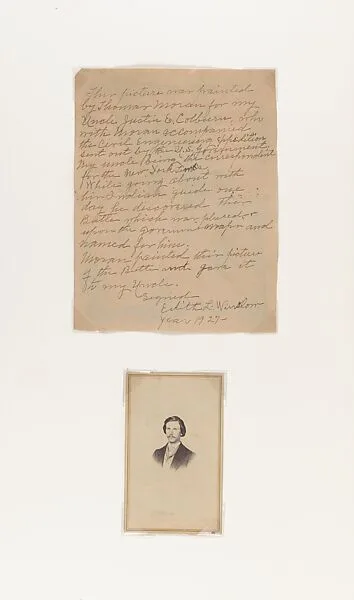 This picture was painted
by Thomas Moran for my
Uncle Justin E. Colburn, who
with Moran accompanied
the Civil Engineering Expedition
sent out by the U.S. Government
My uncle Being the correspondent
for the New York Times
While going about with
his Indian guide one
day he discovered this
Butte which was placed
upon the Government maps and
named for him.
Moran painted this picture
of the Butte and gave it
to my Uncle.
Signed
Edith L. Winslow
Year 1927-